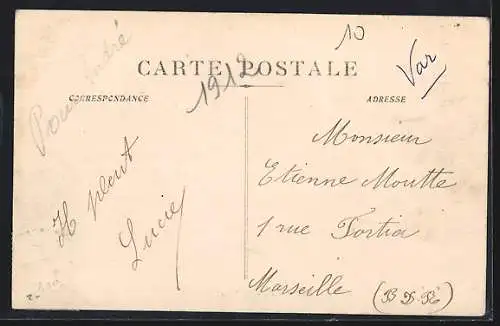 Pour André
10
CARTE POSTALE
1912
Var
CORRESPONDANCE
ADRESSE
Il pleut
Lucie
Monsieur
Etienne Moutte
1 rue Fortia
Marseille
(B D R)